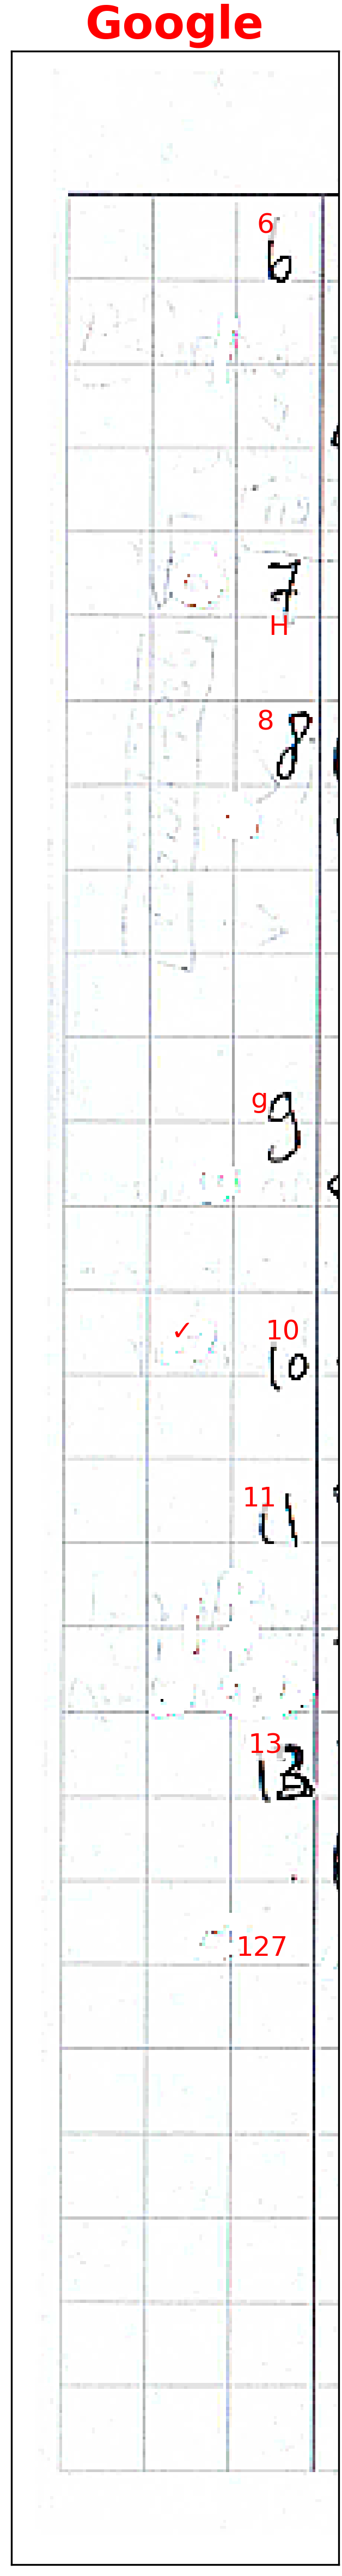 Google
6
6
7
H
8
8
g
9
✓
10
10
11
11
13
13
127